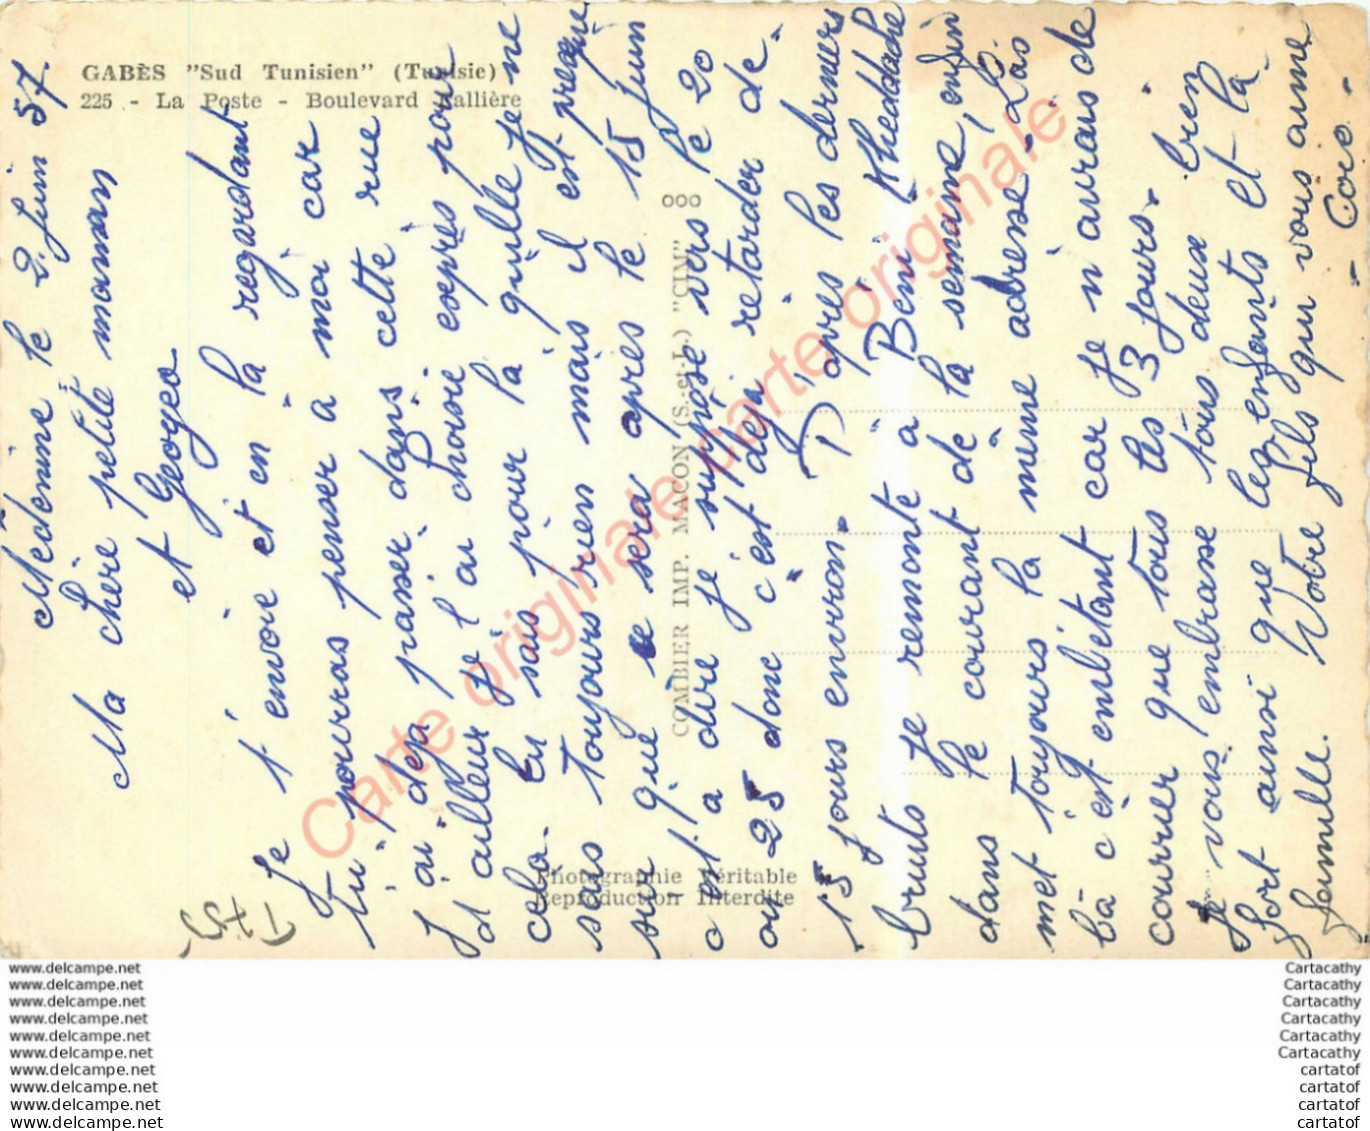 GABÈS "Sud Tunisien" (Tunisie)
225 - La Poste - Boulevard Fallière
Médenine le 2 Juin 57.
Ma chère petite maman
et Geogeo
Je t'envoie et en la regardant
tu pourras penser à moi car
j'ai déjà passer dans cette rue
d'ailleur je l'ai choisie esprès pour
cela. En sais pour la quille je ne
sais toujours rien mais il est presque
sur que se sera après le 15 juin
c'est à dire je suppose vers le 20
ou 25 donc c'est déjà retarder de
15 jours environ. D'après les derniers
bruits je remonte à Beni Kheddache
dans le courant de la semaine, enfin
met toujours la même adresse. Là
bà c'est embêtant car je n'aurais de
courrier que tous les 3 jours.
Je vous embrasse tous deux bien
fort ainsi que les enfants et la
famille. Votre fils qui vous aime
- Coco -
COMBIER IMP. MACON (S.-et-L.) "CIM"
ooo
Photographie Véritable
Reproduction Interdite
Carte originale carte originale
www.delcampe.net
www.delcampe.net
www.delcampe.net
www.delcampe.net
www.delcampe.net
www.delcampe.net
www.delcampe.net
www.delcampe.net
www.delcampe.net
www.delcampe.net
Cartacathy
Cartacathy
Cartacathy
Cartacathy
Cartacathy
Cartacathy
cartatof
cartatof
cartatof
cartatof